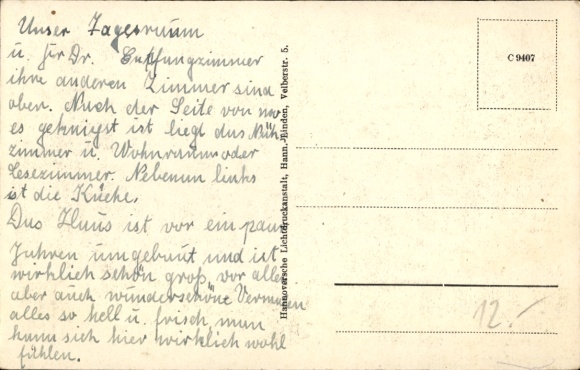 Unser Tagesraum
u. für Dr. Empfungzimmer
ihre anderen Zimmer sind
oben. Nach der Seite von
es geknipst ist liegt das Näh-
zimmer u. Wohnraum oder
Lesezimmer. Nebenan links
ist die Küche.
Das Haus ist vor ein paar
Jahren umgebaut und ist
wirklich schön groß, vor allem
aber auch wunderschöne Vermogen
alles so hell u. frisch, man
kann sich hier wirklich wohl
fühlen.
Hannoversche Lichtdruckanstalt, Hann.-Linden, Velberstr. 5.
C 9407
12.-